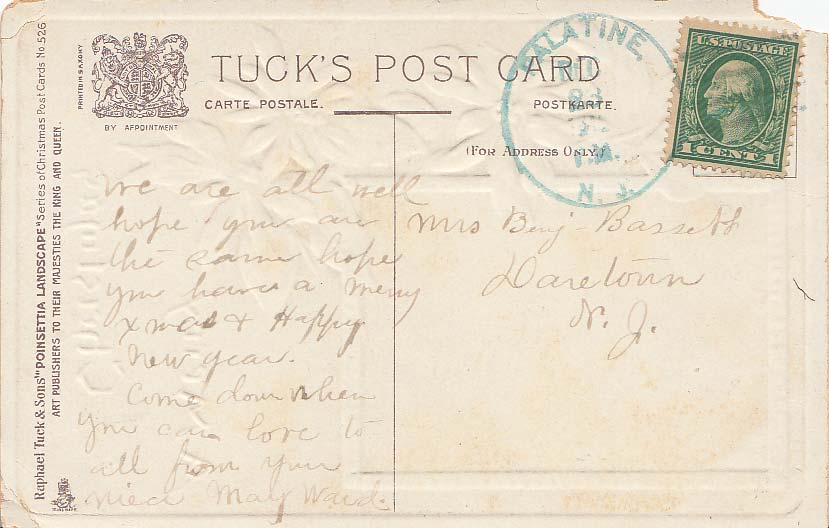 Raphael Tuck & Sons' "POINSETTIA LANDSCAPE" Series of Christmas Post Cards No 526
ART PUBLISHERS TO THEIR MAJESTIES THE KING AND QUEEN.
PRINTED IN SAXONY
BY APPOINTMENT
TUCK'S POST CARD
CARTE POSTALE.
POSTKARTE.
(FOR ADDRESS ONLY.)
PALATINE,
N. J.
U.S. POSTAGE
1 CENT 1
We are all well
hope you are
the same hope
you have a merry
Xmas & Happy
New year.
Come down when
you can love to
all from your
niece May Ward.
Mrs Benj- Bassett
Daretown
N. J.